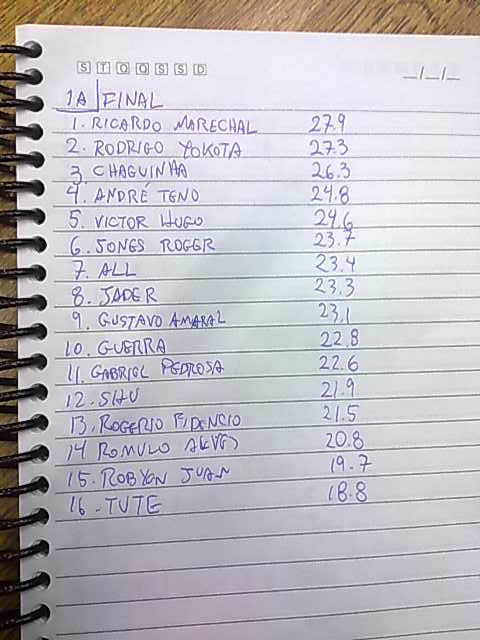 S T Q Q S S D __/__/__
1A FINAL
1. RICARDO MARECHAL 27.9
2. RODRIGO YOKOTA 27.3
3. CHAGUINHA 26.3
4. ANDRÉ TENO 24.8
5. VICTOR HUGO 24.6
6. JONES ROGER 23.7
7. ALL 23.4
8. JADER 23.3
9. GUSTAVO AMARAL 23.1
10. GUERRA 22.8
11. GABRIEL PEDROSA 22.6
12. SHU 21.9
13. ROGERIO FIDENCIO 21.5
14 ROMULO ALVES 20.8
15. ROBYON JUAN 19.7
16. TUTE 18.8